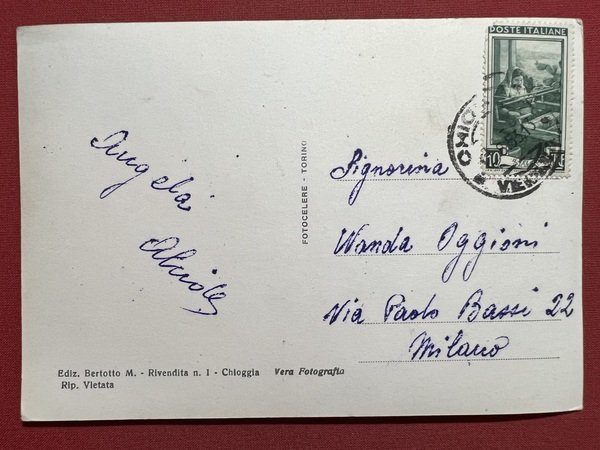 Angela
Alcide
POSTE ITALIANE
10
CHIO
VE
FOTOCELERE - TORINO
Signorina
Wanda Oggioni
Via Paolo Bassi 22
Milano
Ediz. Bertotto M. - Rivendita n. 1 - Chioggia Vera Fotografia
Rip. Vietata